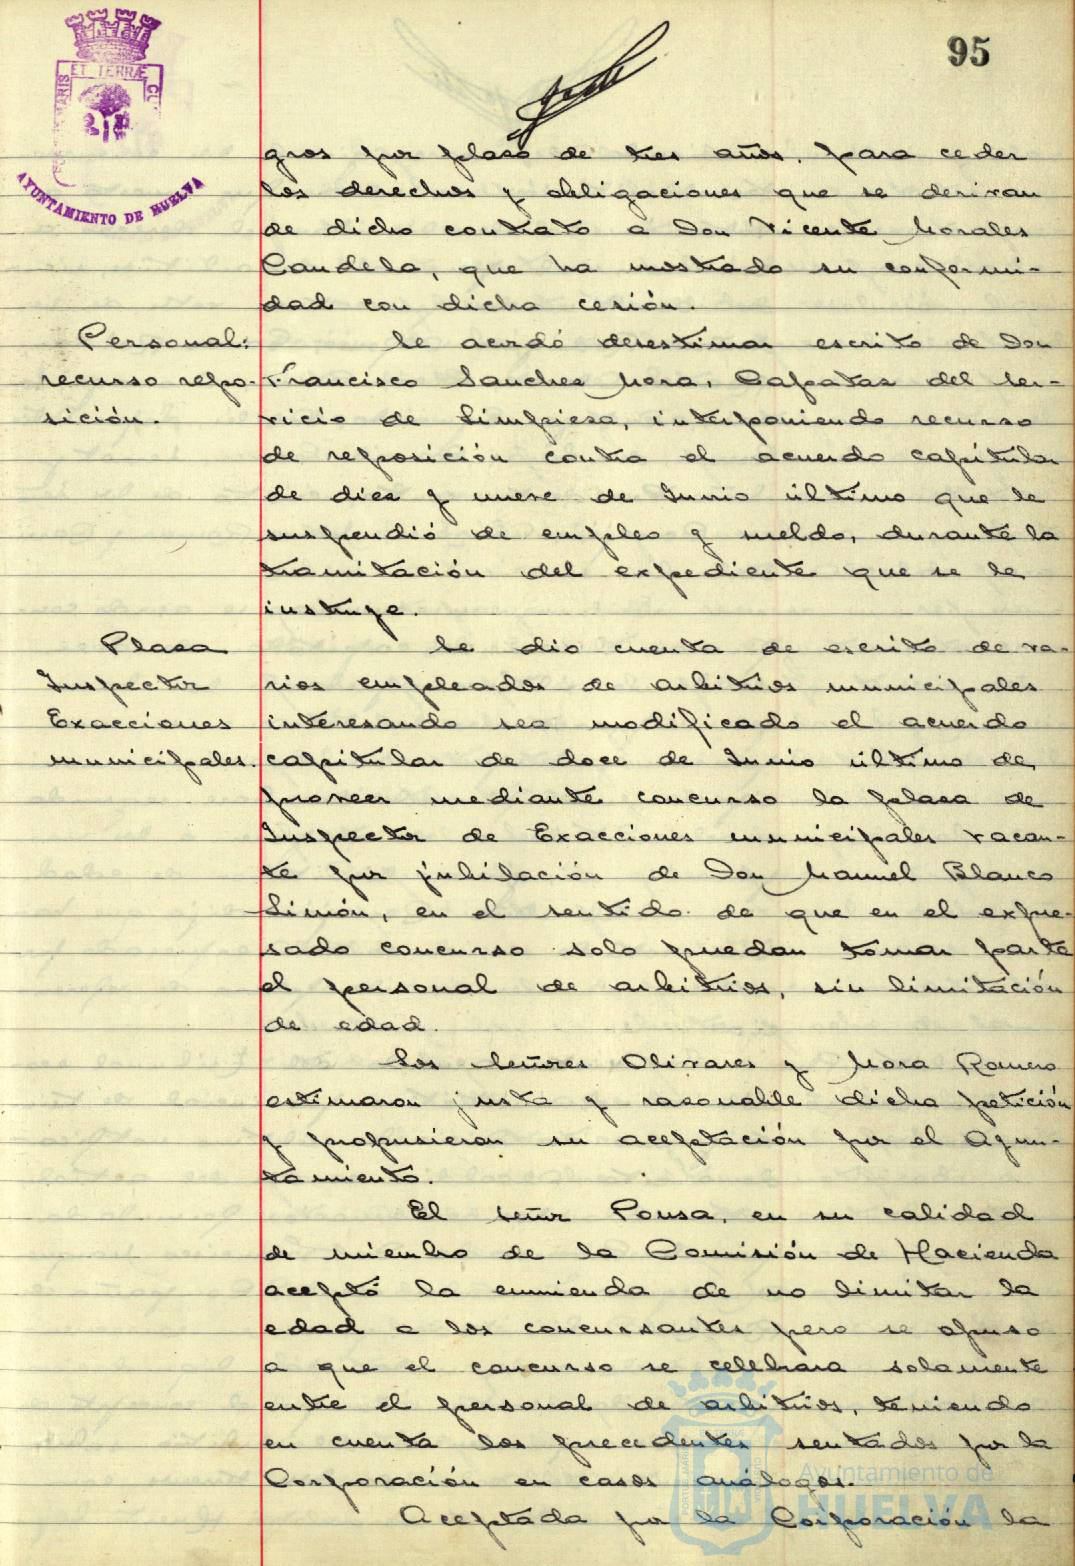 95
ET TERRÆ
AYUNTAMIENTO DE HUELVA
gros por plaso de tres años, para ceder
los derechos y obligaciones que se derivan
de dicho contrato a Don Vicente Morales
Candela, que ha mostrado su conformi-
dad con dicha cesión.
Personal:
recurso repo-
sición.
Se acordó desestimar escrito de Don
Francisco Sanches Mora, Capatas del Ser-
vicio de Limpiesa, interponiendo recurso
de reposición contra el acuerdo capitular
de dies y nueve de Junio último que le
suspendió de empleo y sueldo, durante la
tramitación del expediente que se le
instruye.
Plasa
Inspector
Exacciones
municipales.
Se dio cuenta de escrito de va-
rios empleados de arbitrios municipales
interesando sea modificado el acuerdo
capitular de doce de Junio último de
proveer mediante concurso la plasa de
Inspector de Exacciones municipales vacan-
te por jubilación de Don Manuel Blanco
Simón, en el sentido de que en el expre-
sado concurso solo puedan tomar parte
el personal de arbitrios, sin limitación
de edad.
Los Señores Olivares y Mora Romero
estimaron justa y rasonable dicha petición
y propusieron su aceptación por el Ayun-
tamiento.
El Señor Pousa, en su calidad
de miembro de la Comisión de Hacienda
aceptó la enmienda de no limitar la
edad a los concursantes pero se opuso
a que el concurso se celebrara solamente
entre el personal de arbitrios, teniendo
en cuenta los precedentes sentados por la
Corporación en casos análogos.
Aceptada por la Corporación la
Ayuntamiento de
HUELVA